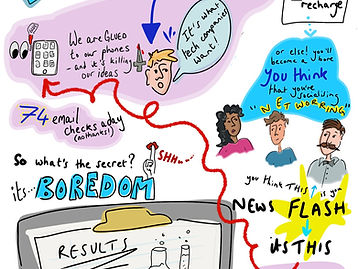 recharge
We are GLUED
to our phones
- and it's killing
our ideas
It's what
tech companies
want!
or else! you'll
become a bore
YOU THINK
that you're
socialising
"NETWORKING"
74 email
checks a day
(no thanks!)
So what's the secret?
its... BOREDOM
SHH...
you think THIS
is you
NEWS FLASH
it's THIS
RESULTS